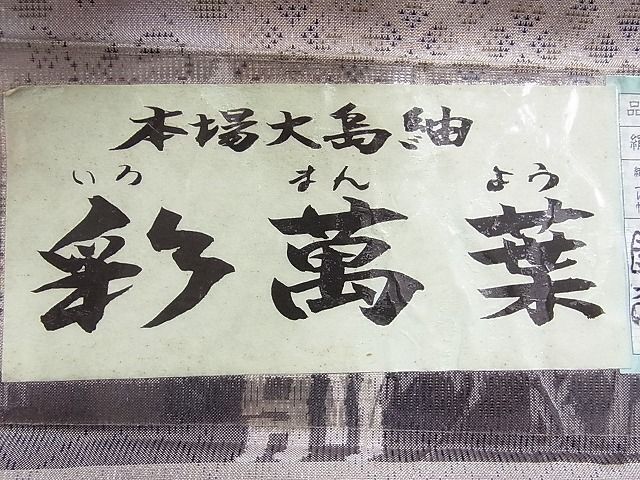 本場大島紬
いろ まん よう
彩萬葉
品
絹